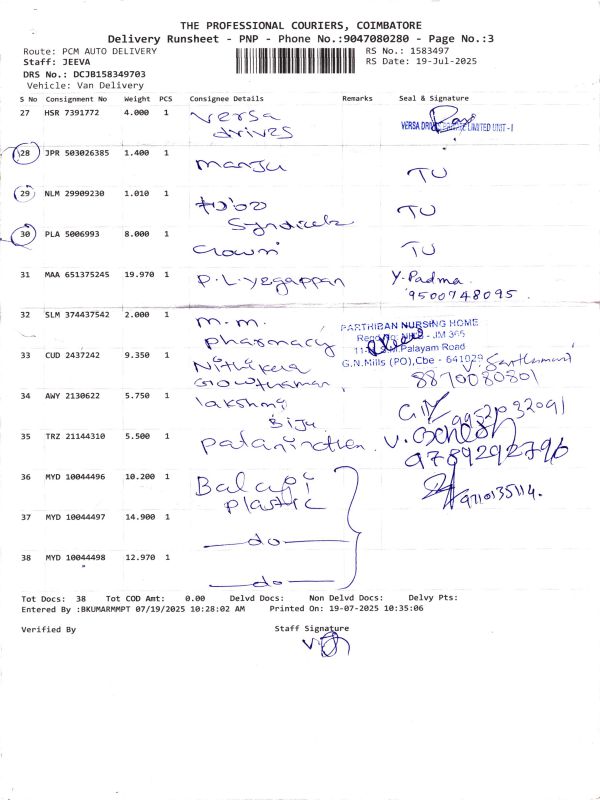 THE PROFESSIONAL COURIERS, COIMBATORE
Delivery Runsheet - PNP - Phone No.:9047080280 - Page No.:3
Route: PCM AUTO DELIVERY RS No.: 1583497
Staff: JEEVA RS Date: 19-Jul-2025
DRS No.: DCJB158349703
Vehicle: Van Delivery
S No Consignment No Weight PCS Consignee Details Remarks Seal & Signature
27 HSR 7391772 4.000 1 Versa drives VERSA DRIVES PRIVATE LIMITED UNIT-I
28 JPR 503026385 1.400 1 Manju TU
29 NLM 29909230 1.010 1 Syndicate TU
30 PLA 5006993 8.000 1 Crown TU
31 MAA 651375245 19.970 1 P.L.Yegappan Y.Padma. 9500748095.
32 SLM 374437542 2.000 1 M.M. Pharmacy PARTHIBAN NURSING HOME
JM 365
Palayam Road
G.N.Mills (PO),Cbe - 641029
33 CUD 2437242 9.350 1 Nithikea Gowthaman, 8870080801
34 AWY 2130622 5.750 1 lakshmi Biju
35 TRZ 21144310 5.500 1 V. Ganesh 9789292796
36 MYD 10044496 10.200 1 Balaji Plastic 9710135114.
37 MYD 10044497 14.900 1 do
38 MYD 10044498 12.970 1 do
Tot Docs: 38 Tot COD Amt: 0.00 Delvd Docs: Non Delvd Docs: Delvy Pts:
Entered By :BKUMARMMPT 07/19/2025 10:28:02 AM Printed On: 19-07-2025 10:35:06
Verified By Staff Signature